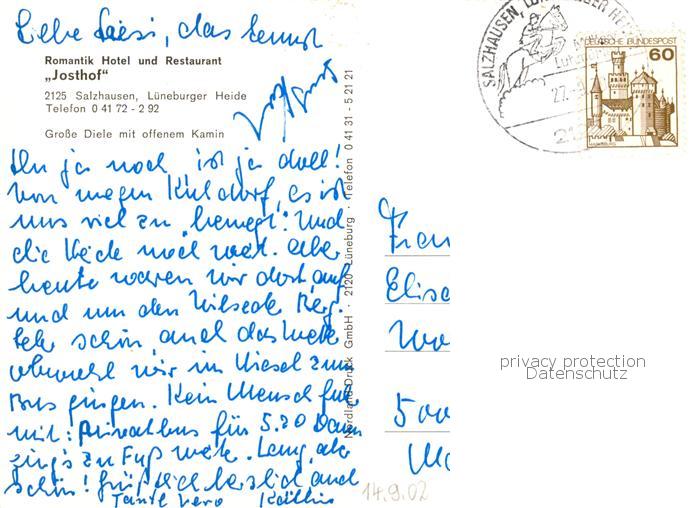 Liebe Liesi, das kennst
Romantik Hotel und Restaurant
„Josthof“
2125 Salzhausen, Lüneburger Heide
Telefon 0 41 72 - 2 92
Große Diele mit offenem Kamin
Du ja noch ist ja doll!
Von wegen es ist
uns viel zu bewegt! Und
die Heide noch weit. Aber
heute waren wir dort auf
und um den Wilseder Berg.
Sehr schön, auch das Wetter
obwohl wir im Niesel zum
Bus gingen. Kein Mensch fuhr
mit: Privatbus für 5.20 Dann
ging's zu Fuß weiter. Lang, aber
schön! Grüß dich herzlich auch
Tante Vera Käthie
Nordland-Druck GmbH · 2120 Lüneburg · Telefon 0 41 31 - 5 21 21
SALZHAUSEN,
27.
DEUTSCHE BUNDESPOST
60
Frau
Elisa
500
privacy protection
Datenschutz
14.9.02